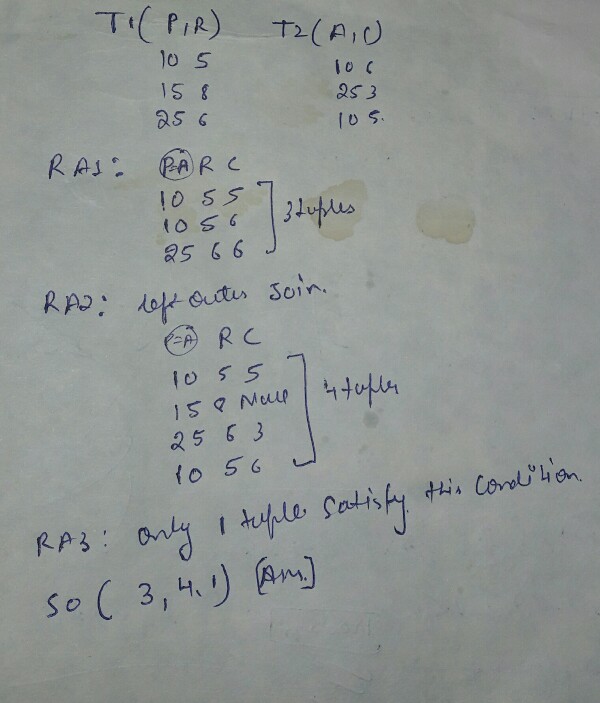 T1(P,R) T2(A,C)
10 5 10 6
15 8 25 3
25 6 10 5.
RA1: P=A R C
10 5 5
10 5 6 3 tuples
25 6 6
RA2: left outer Join.
P=A R C
10 5 5
15 8 Null 4 tuples
25 6 3
10 5 6
RA3: only 1 tuple satisfy this condition.
SO ( 3,4,1) [Ans.]